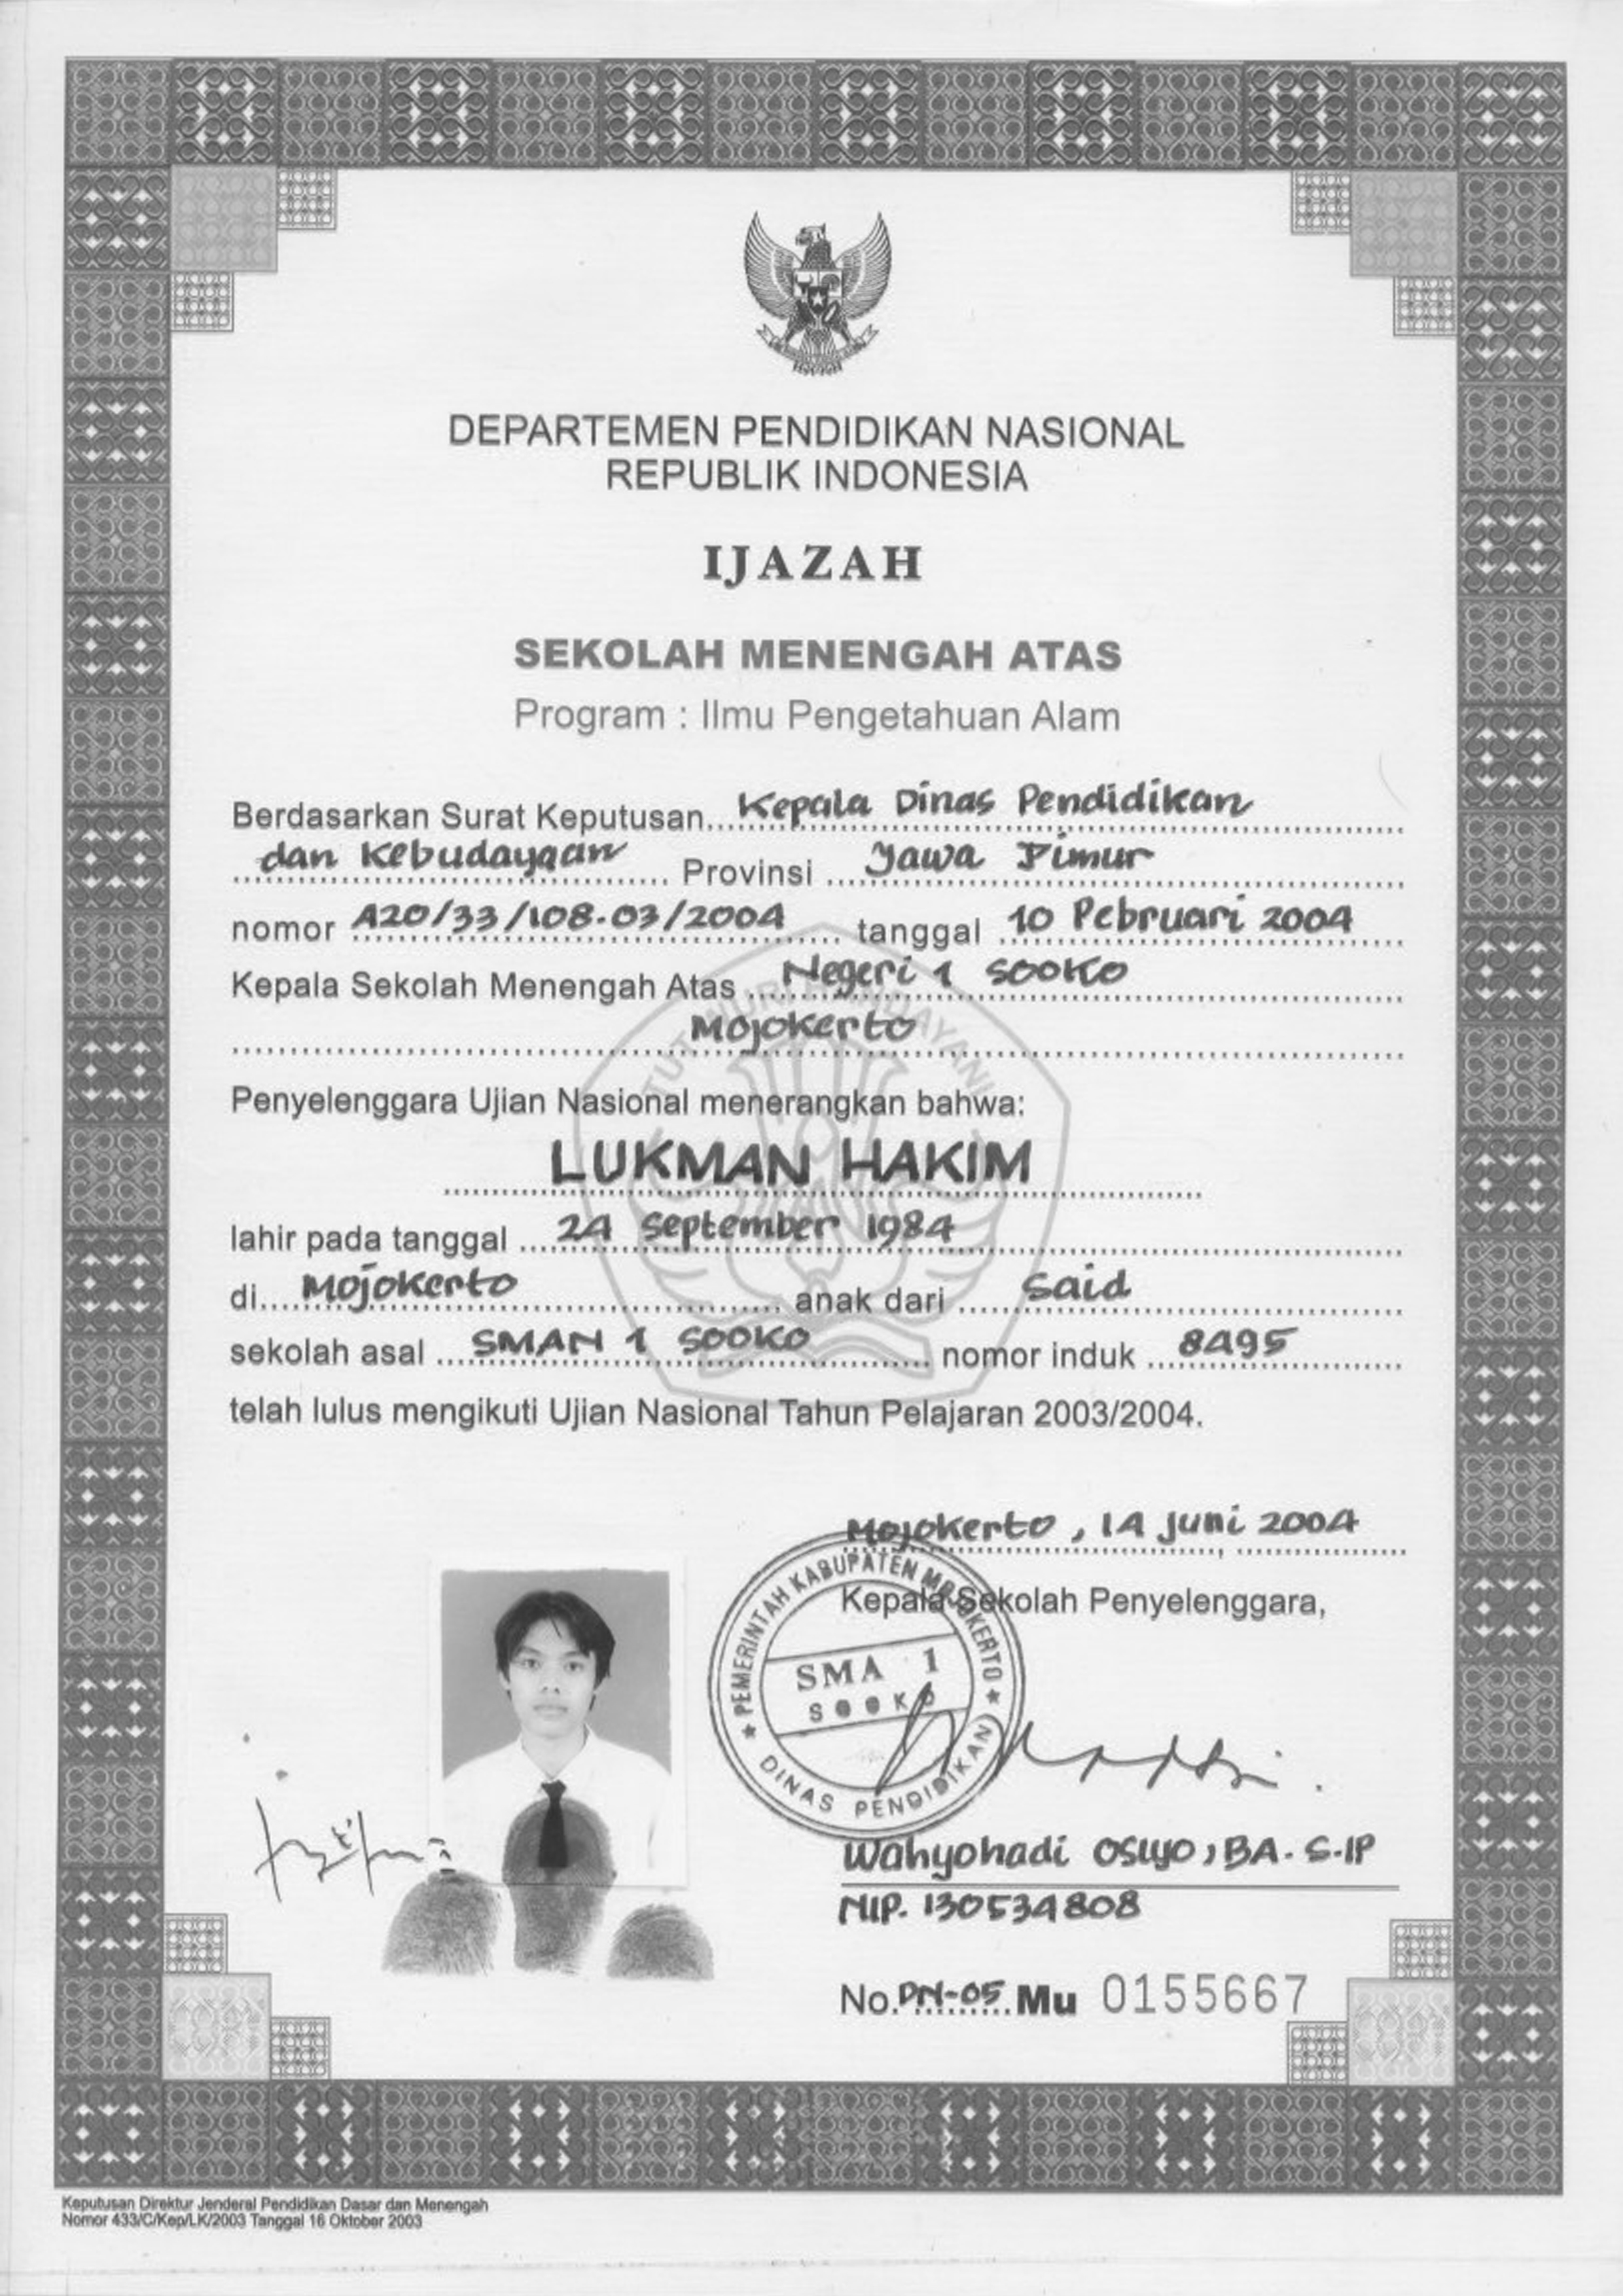 DEPARTEMEN PENDIDIKAN NASIONAL
REPUBLIK INDONESIA
IJAZAH
SEKOLAH MENENGAH ATAS
Program : Ilmu Pengetahuan Alam
Berdasarkan Surat Keputusan Kepala Dinas Pendidikan
dan Kebudayaan Provinsi Jawa Timur
nomor 420/33/108.03/2004 tanggal 10 Pebruari 2004
Kepala Sekolah Menengah Atas Negeri 1 Sooko
Mojokerto
TUT WURI HANDAYANI
Penyelenggara Ujian Nasional menerangkan bahwa:
LUKMAN HAKIM
lahir pada tanggal 24 September 1984
di Mojokerto anak dari Said
sekolah asal SMAN 1 SOOKO nomor induk 8495
telah lulus mengikuti Ujian Nasional Tahun Pelajaran 2003/2004.
Mojokerto, 14 Juni 2004
Kepala Sekolah Penyelenggara,
PEMERINTAH KABUPATEN MOJOKERTO
SMA 1
SOOKO
DINAS PENDIDIKAN
Wahyohadi OSWO, BA. S.IP
NIP. 130534808
No. DN-05 Mu 0155667
Keputusan Direktur Jenderal Pendidikan Dasar dan Menengah
Nomor 433/C/Kep/LK/2003 Tanggal 16 Oktober 2003